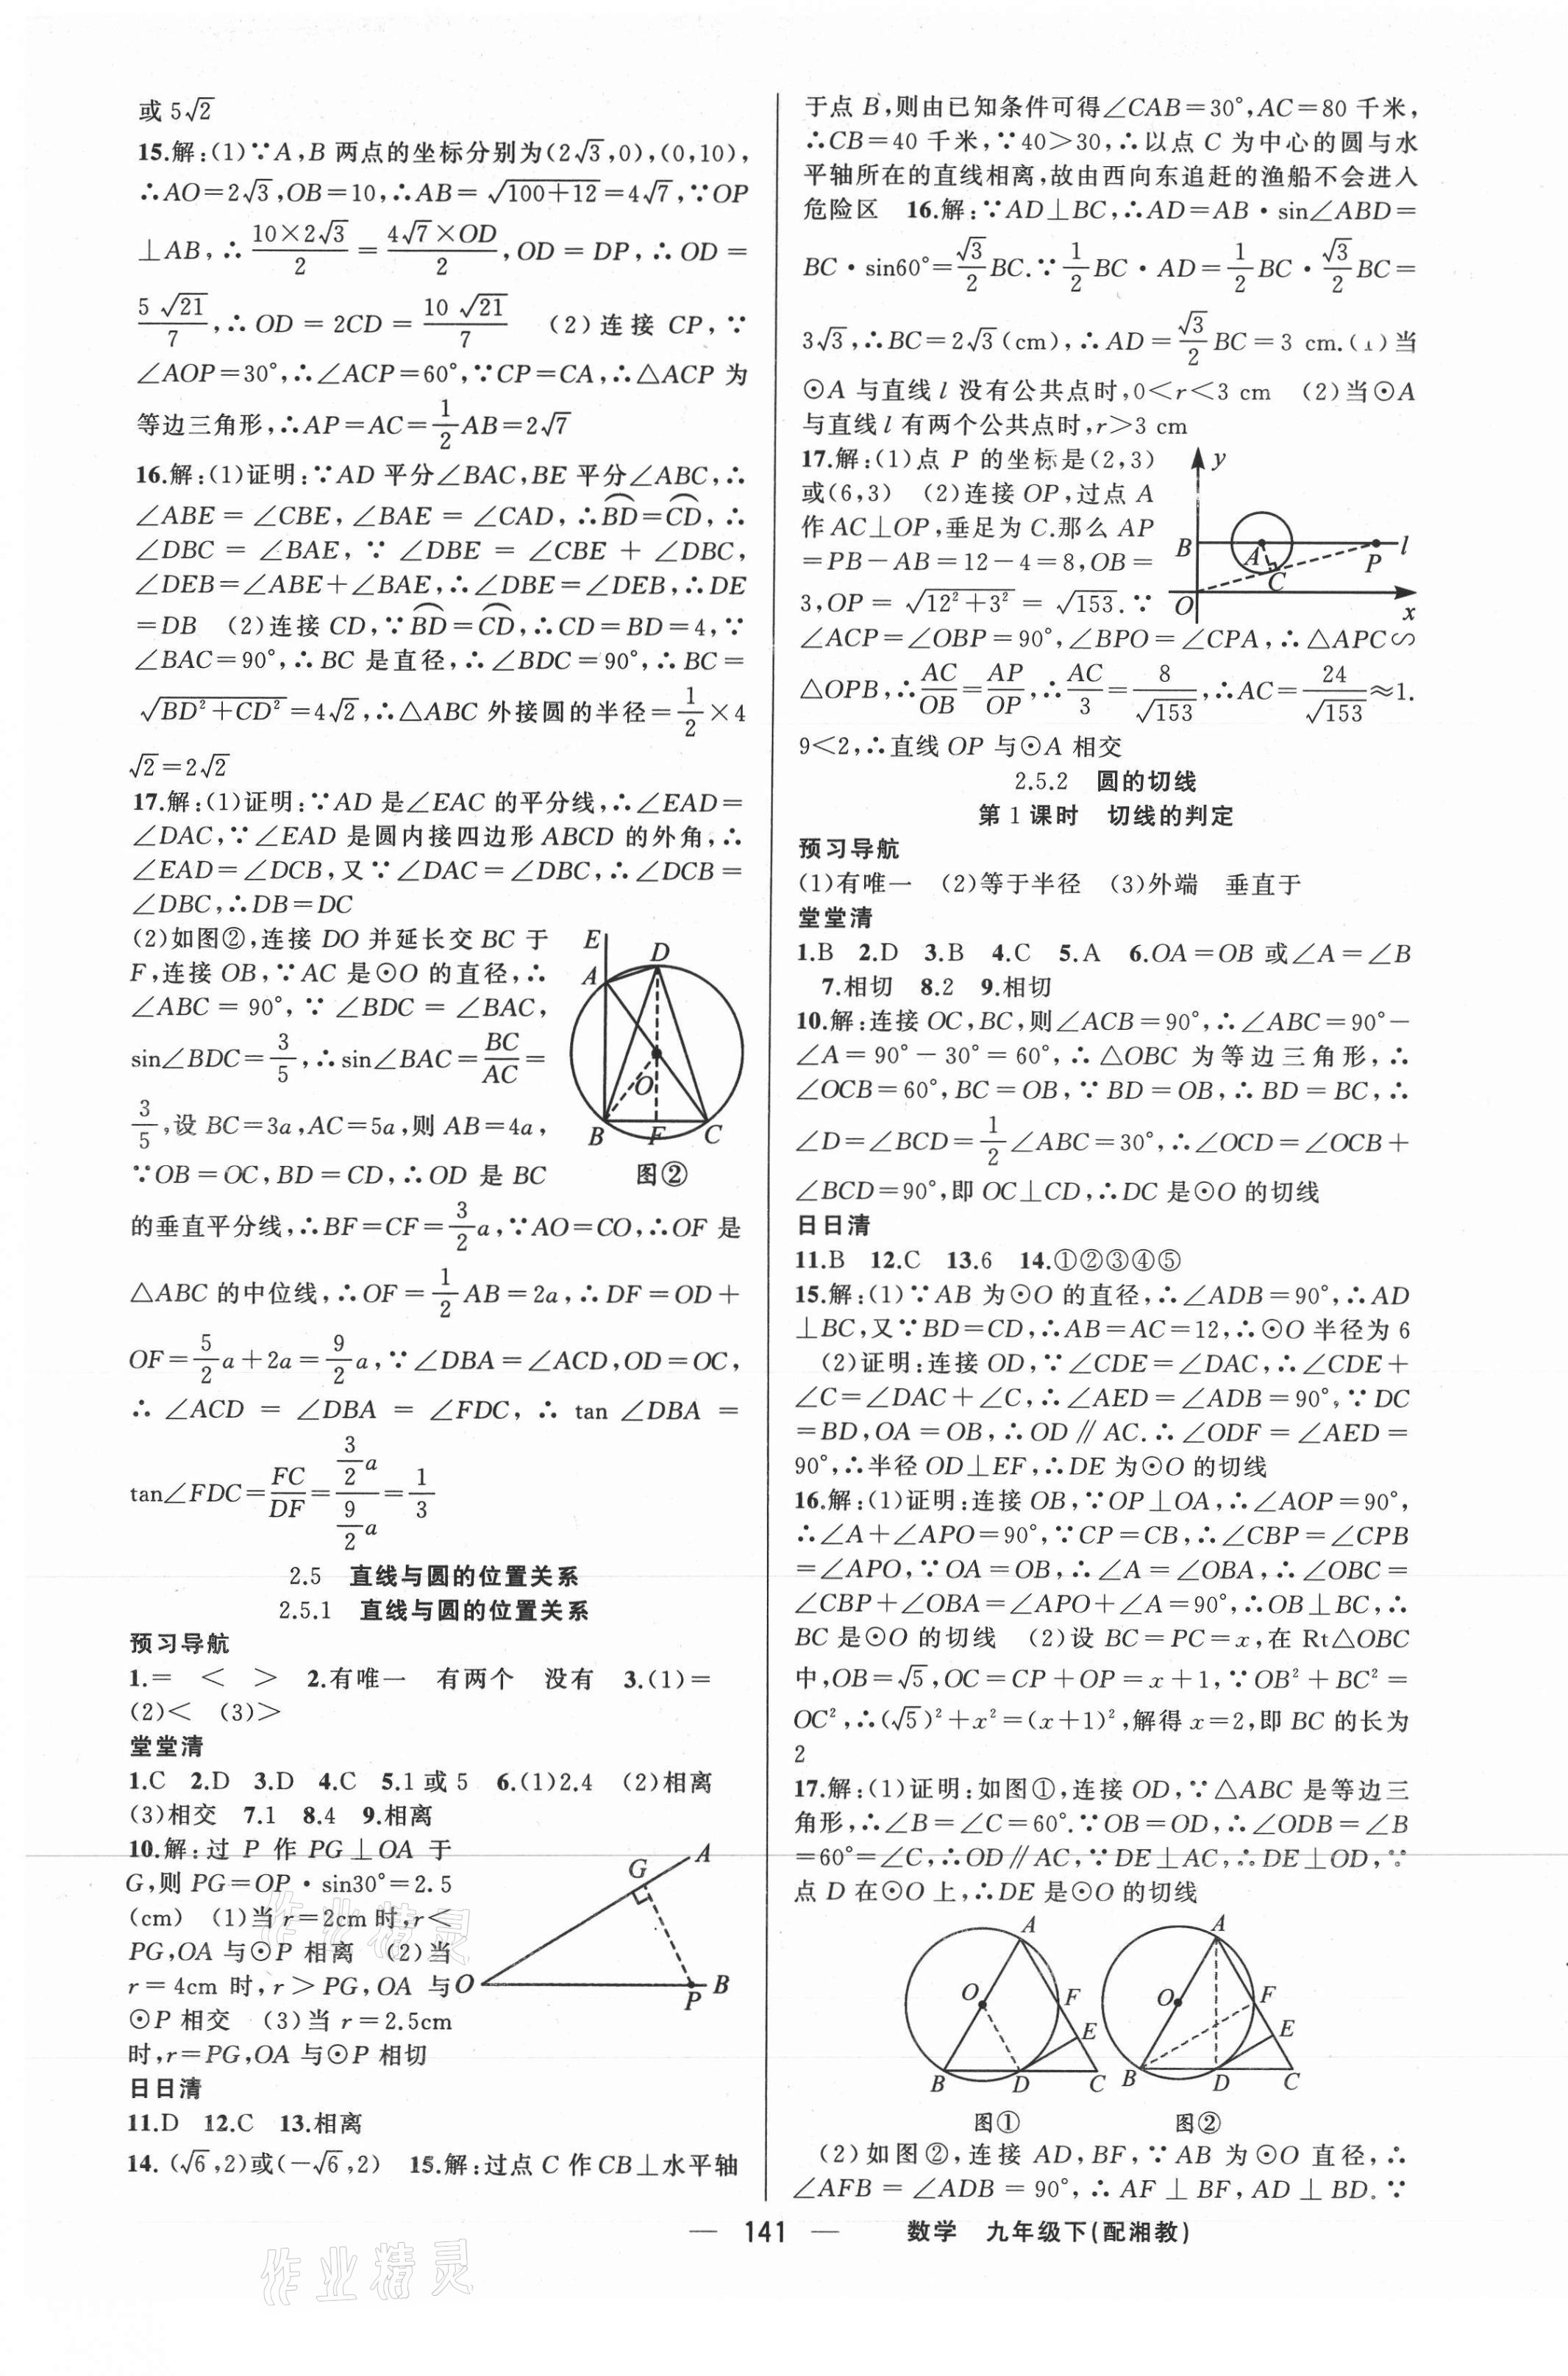 或 5√2
15.解:(1)∵A,B 两点的坐标分别为(2√3,0),(0,10),
∴AO=2√3,OB=10,∴AB=√(100+12)=4√7,∵OP
⊥AB,∴(10×2√3)/2=(4√7×OD)/2,OD=DP,∴OD=
5√21/7,∴OD=2CD=10√21/7 (2)连接 CP,∵
∠AOP=30°,∴∠ACP=60°,∵CP=CA,∴△ACP 为
等边三角形,∴AP=AC=1/2AB=2√7
16.解:(1)证明:∵AD 平分∠BAC,BE 平分∠ABC,∴
∠ABE=∠CBE,∠BAE=∠CAD,∴⌒BD=⌒CD,∴
∠DBC=∠BAE,∵∠DBE=∠CBE+∠DBC,
∠DEB=∠ABE+∠BAE,∴∠DBE=∠DEB,∴DE
=DB (2)连接 CD,∵⌒BD=⌒CD,∴CD=BD=4,∵
∠BAC=90°,∴BC 是直径,∴∠BDC=90°,∴BC=
√(BD²+CD²)=4√2,∴△ABC 外接圆的半径=1/2×4
√2=2√2
17.解:(1)证明:∵AD 是∠EAC 的平分线,∴∠EAD=
∠DAC,∵∠EAD 是圆内接四边形 ABCD 的外角,∴
∠EAD=∠DCB,又∵∠DAC=∠DBC,∴∠DCB=
∠DBC,∴DB=DC
(2)如图②,连接 DO 并延长交 BC 于
F,连接 OB,∵AC 是⊙O 的直径,∴
∠ABC=90°,∵∠BDC=∠BAC,
sin∠BDC=3/5,∴sin∠BAC=BC/AC=
3/5,设 BC=3a,AC=5a,则 AB=4a,
∵OB=OC,BD=CD,∴OD 是 BC
E
D
A
O
B
F
C
图②
的垂直平分线,∴BF=CF=3/2a,∵AO=CO,∴OF 是
△ABC 的中位线,∴OF=1/2AB=2a,∴DF=OD+
OF=5/2a+2a=9/2a,∵∠DBA=∠ACD,OD=OC,
∴∠ACD=∠DBA=∠FDC,∴tan∠DBA=
tan∠FDC=FC/DF=(3/2a)/(9/2a)=1/3
2.5 直线与圆的位置关系
2.5.1 直线与圆的位置关系
预习导航
1.= < > 2.有唯一 有两个 没有 3.(1)=
(2)< (3)>
堂堂清
1.C 2.D 3.D 4.C 5.1 或 5 6.(1)2.4 (2)相离
(3)相交 7.1 8.4 9.相离
10.解:过 P 作 PG⊥OA 于
G,则 PG=OP·sin30°=2.5
(cm) (1)当 r=2cm 时,r<
PG,OA 与⊙P 相离 (2)当
r=4cm 时,r>PG,OA 与
⊙P 相交 (3)当 r=2.5cm
时,r=PG,OA 与⊙P 相切
G
A
O
P
B
日日清
11.D 12.C 13.相离
14.(√6,2)或(-√6,2) 15.解:过点 C 作 CB⊥水平轴
于点 B,则由已知条件可得∠CAB=30°,AC=80 千米,
∴CB=40 千米,∵40>30,∴以点 C 为中心的圆与水
平轴所在的直线相离,故由西向东追赶的渔船不会进入
危险区 16.解:∵AD⊥BC,∴AD=AB·sin∠ABD=
BC·sin60°=√3/2BC.∵1/2BC·AD=1/2BC·√3/2BC=
3√3,∴BC=2√3(cm),∴AD=√3/2BC=3 cm.(1)当
⊙A 与直线 l 没有公共点时,0<r<3 cm (2)当⊙A
与直线 l 有两个公共点时,r>3 cm
17.解:(1)点 P 的坐标是(2,3)
或(6,3) (2)连接 OP,过点 A
作 AC⊥OP,垂足为 C.那么 AP
=PB-AB=12-4=8,OB=
3,OP=√(12²+3²)=√153.∵
y
B
A
C
P
l
O
x
∠ACP=∠OBP=90°,∠BPO=∠CPA,∴△APC∽
△OPB,∴AC/OB=AP/OP,∴AC/3=8/√153,∴AC=24/√153≈1.
9<2,∴直线 OP 与⊙A 相交
2.5.2 圆的切线
第 1 课时 切线的判定
预习导航
(1)有唯一 (2)等于半径 (3)外端 垂直于
堂堂清
1.B 2.D 3.B 4.C 5.A 6.OA=OB 或∠A=∠B
7.相切 8.2 9.相切
10.解:连接 OC,BC,则∠ACB=90°,∴∠ABC=90°-
∠A=90°-30°=60°,∴△OBC 为等边三角形,∴
∠OCB=60°,BC=OB,∵BD=OB,∴BD=BC,∴
∠D=∠BCD=1/2∠ABC=30°,∴∠OCD=∠OCB+
∠BCD=90°,即 OC⊥CD,∴DC 是⊙O 的切线
日日清
11.B 12.C 13.6 14.①②③④⑤
15.解:(1)∵AB 为⊙O 的直径,∴∠ADB=90°,∴AD
⊥BC,又∵BD=CD,∴AB=AC=12,∴⊙O 半径为 6
(2)证明:连接 OD,∵∠CDE=∠DAC,∴∠CDE+
∠C=∠DAC+∠C,∴∠AED=∠ADB=90°,∵DC
=BD,OA=OB,∴OD∥AC.∴∠ODF=∠AED=
90°,∴半径 OD⊥EF,∴DE 为⊙O 的切线
16.解:(1)证明:连接 OB,∵OP⊥OA,∴∠AOP=90°,
∴∠A+∠APO=90°,∵CP=CB,∴∠CBP=∠CPB
=∠APO,∵OA=OB,∴∠A=∠OBA,∴∠OBC=
∠CBP+∠OBA=∠APO+∠A=90°,∴OB⊥BC,∴
BC 是⊙O 的切线 (2)设 BC=PC=x,在 Rt△OBC
中,OB=√5,OC=CP+OP=x+1,∵OB²+BC²=
OC²,∴(√5)²+x²=(x+1)²,解得 x=2,即 BC 的长为
2
17.解:(1)证明:如图①,连接 OD,∵△ABC 是等边三
角形,∴∠B=∠C=60°.∵OB=OD,∴∠ODB=∠B
=60°=∠C,∴OD∥AC,∵DE⊥AC,∴DE⊥OD,∵
点 D 在⊙O 上,∴DE 是⊙O 的切线
A
O
F
E
B
D
C
图①
A
O
F
E
B
D
C
图②
(2)如图②,连接 AD,BF,∵AB 为⊙O 直径,∴
∠AFB=∠ADB=90°,∴AF⊥BF,AD⊥BD.∵
— 141 — 数学 九年级下(配湘教)
作业精灵
作业精灵